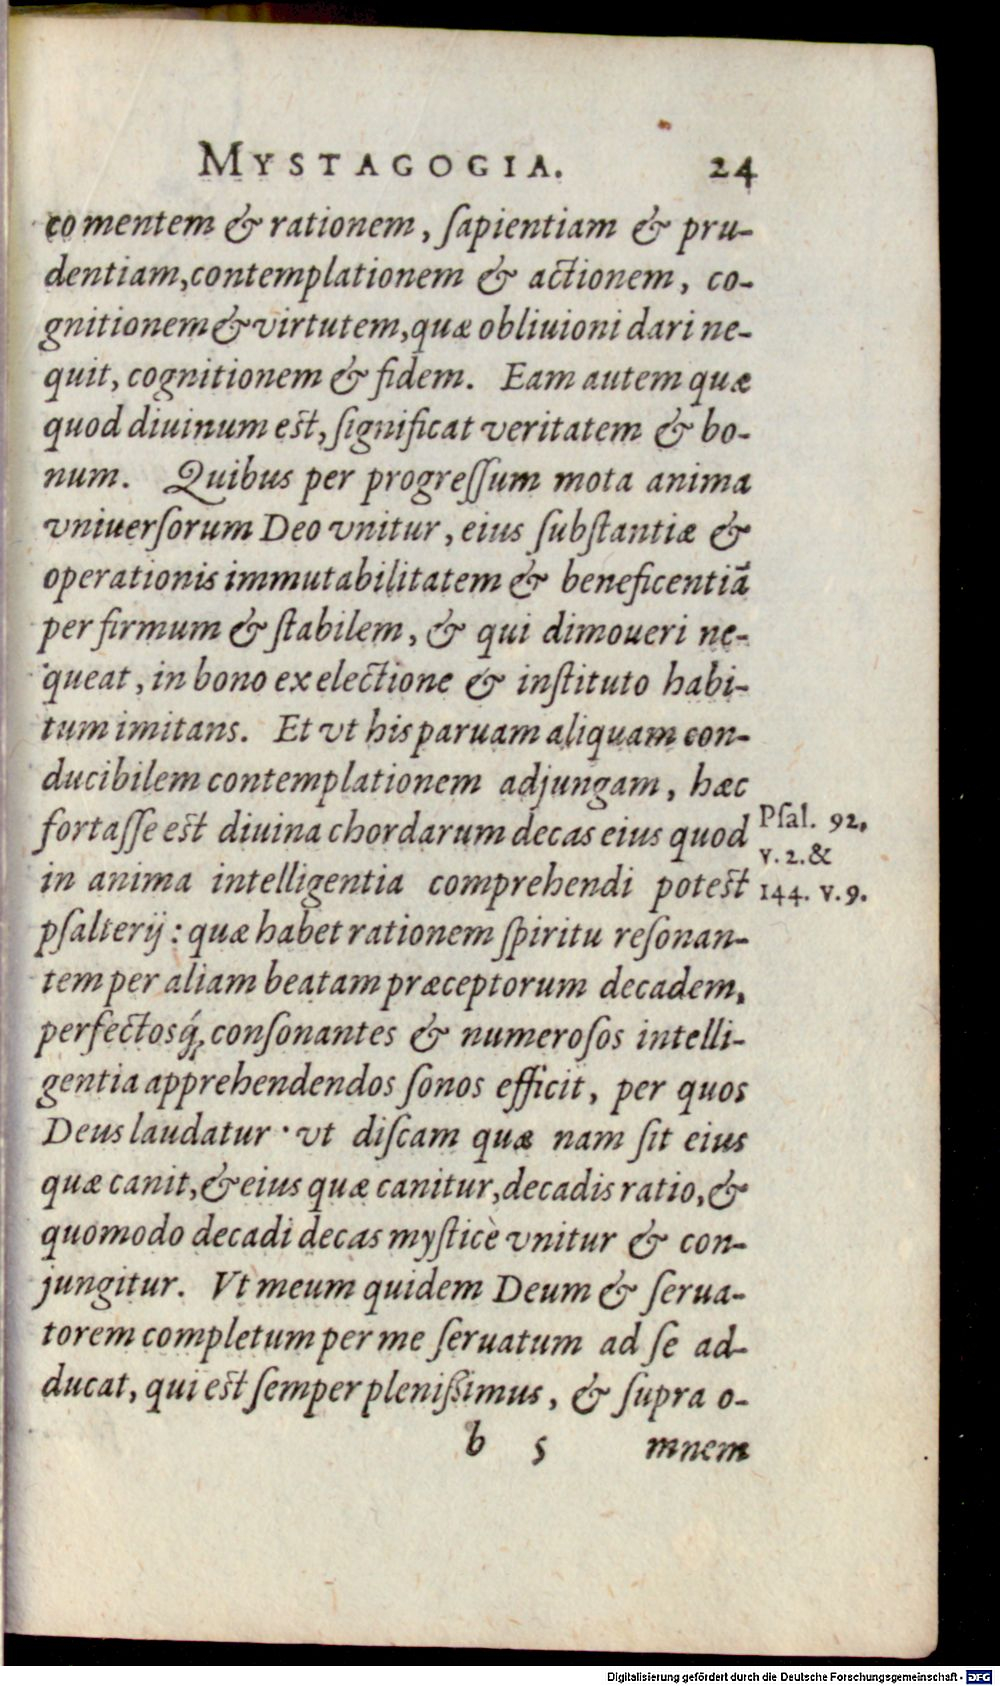 MYSTAGOGIA. 24
co mentem & rationem, ſapientiam & pru-
dentiam, contemplationem & actionem, co-
gnitionem & virtutem, quæ obliuioni dari ne-
quit, cognitionem & fidem. Eam autem quæ
quod diuinum est, ſignificat veritatem & bo-
num. Quibus per progreſſum mota anima
vniuerſorum Deo vnitur, eius ſubſtantiæ &
operationis immutabilitatem & beneficentiã
per firmum & ſtabilem, & qui dimoueri ne-
queat, in bono ex electione & inſtituto habi-
tum imitans. Et vt his paruam aliquam con-
ducibilem contemplationem adjungam, hæc
fortaſſe est diuina chordarum decas eius quod
Pſal. 92,
v. 2. &
in anima intelligentia comprehendi potest
144. v. 9.
pſalterij: quæ habet rationem ſpiritu reſonan-
tem per aliam beatam præceptorum decadem,
perfectosq́; conſonantes & numeroſos intelli-
gentia apprehendendos ſonos efficit, per quos
Deus laudatur · vt diſcam quæ nam ſit eius
quæ canit, & eius quæ canitur, decadis ratio, &
quomodo decadi decas myſticè vnitur & con-
jungitur. Vt meum quidem Deum & ſerua-
torem completum per me ſeruatum ad ſe ad-
ducat, qui est ſemper pleniſſimus, & ſupra o-
b 5 mnem
Digitalisierung gefördert durch die Deutsche Forschungsgemeinschaft - DFG